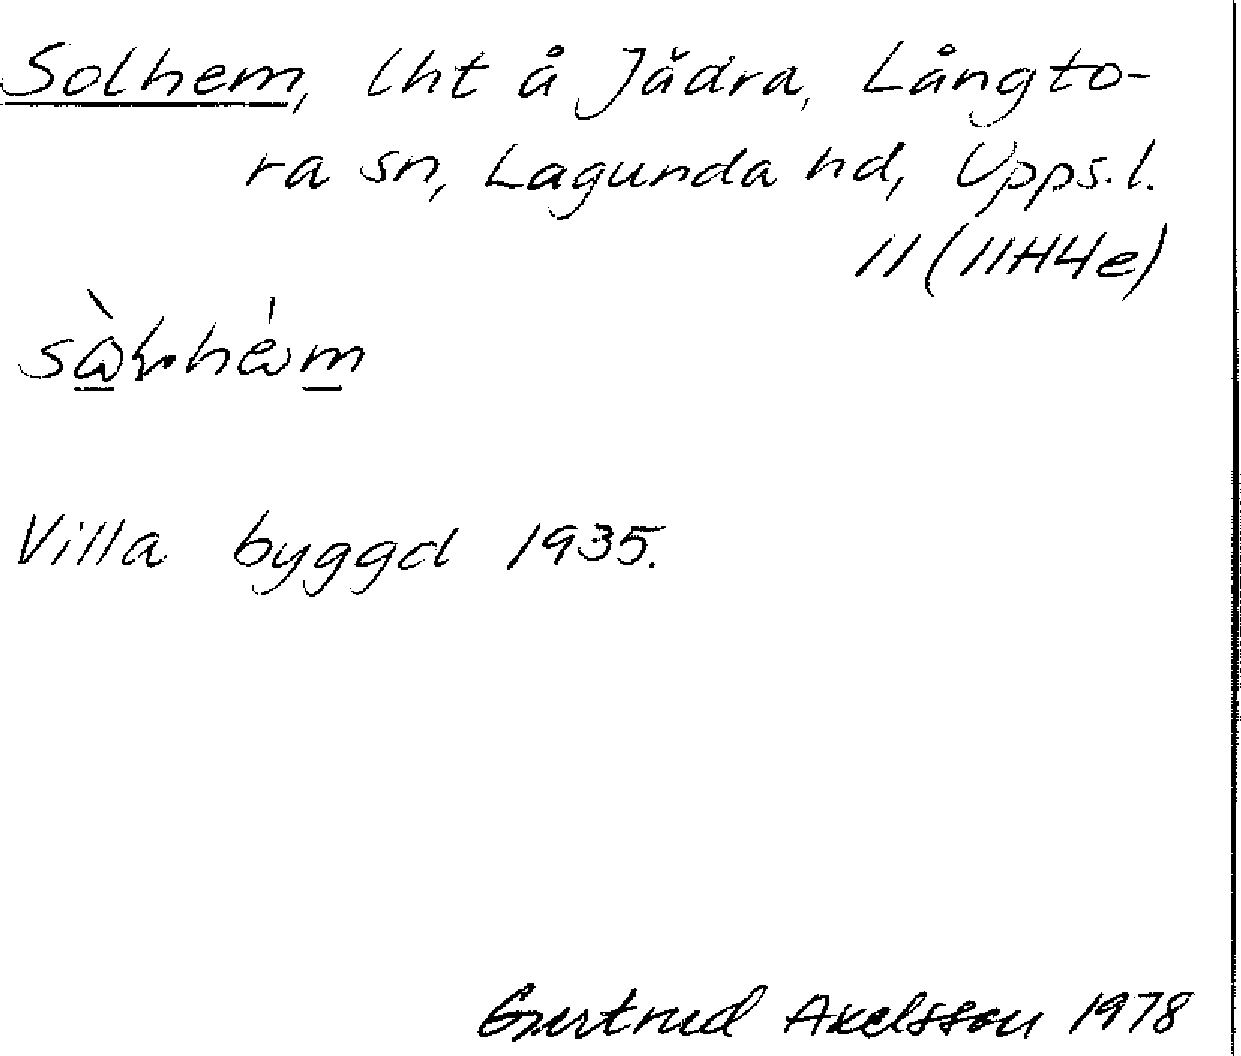 Solhem, lht å Jädra, Långto-
ra sn, Lagunda hd, Upps.l.
11 (11H4e)
Villa byggd 1935.
Gertrud Axelsson 1978